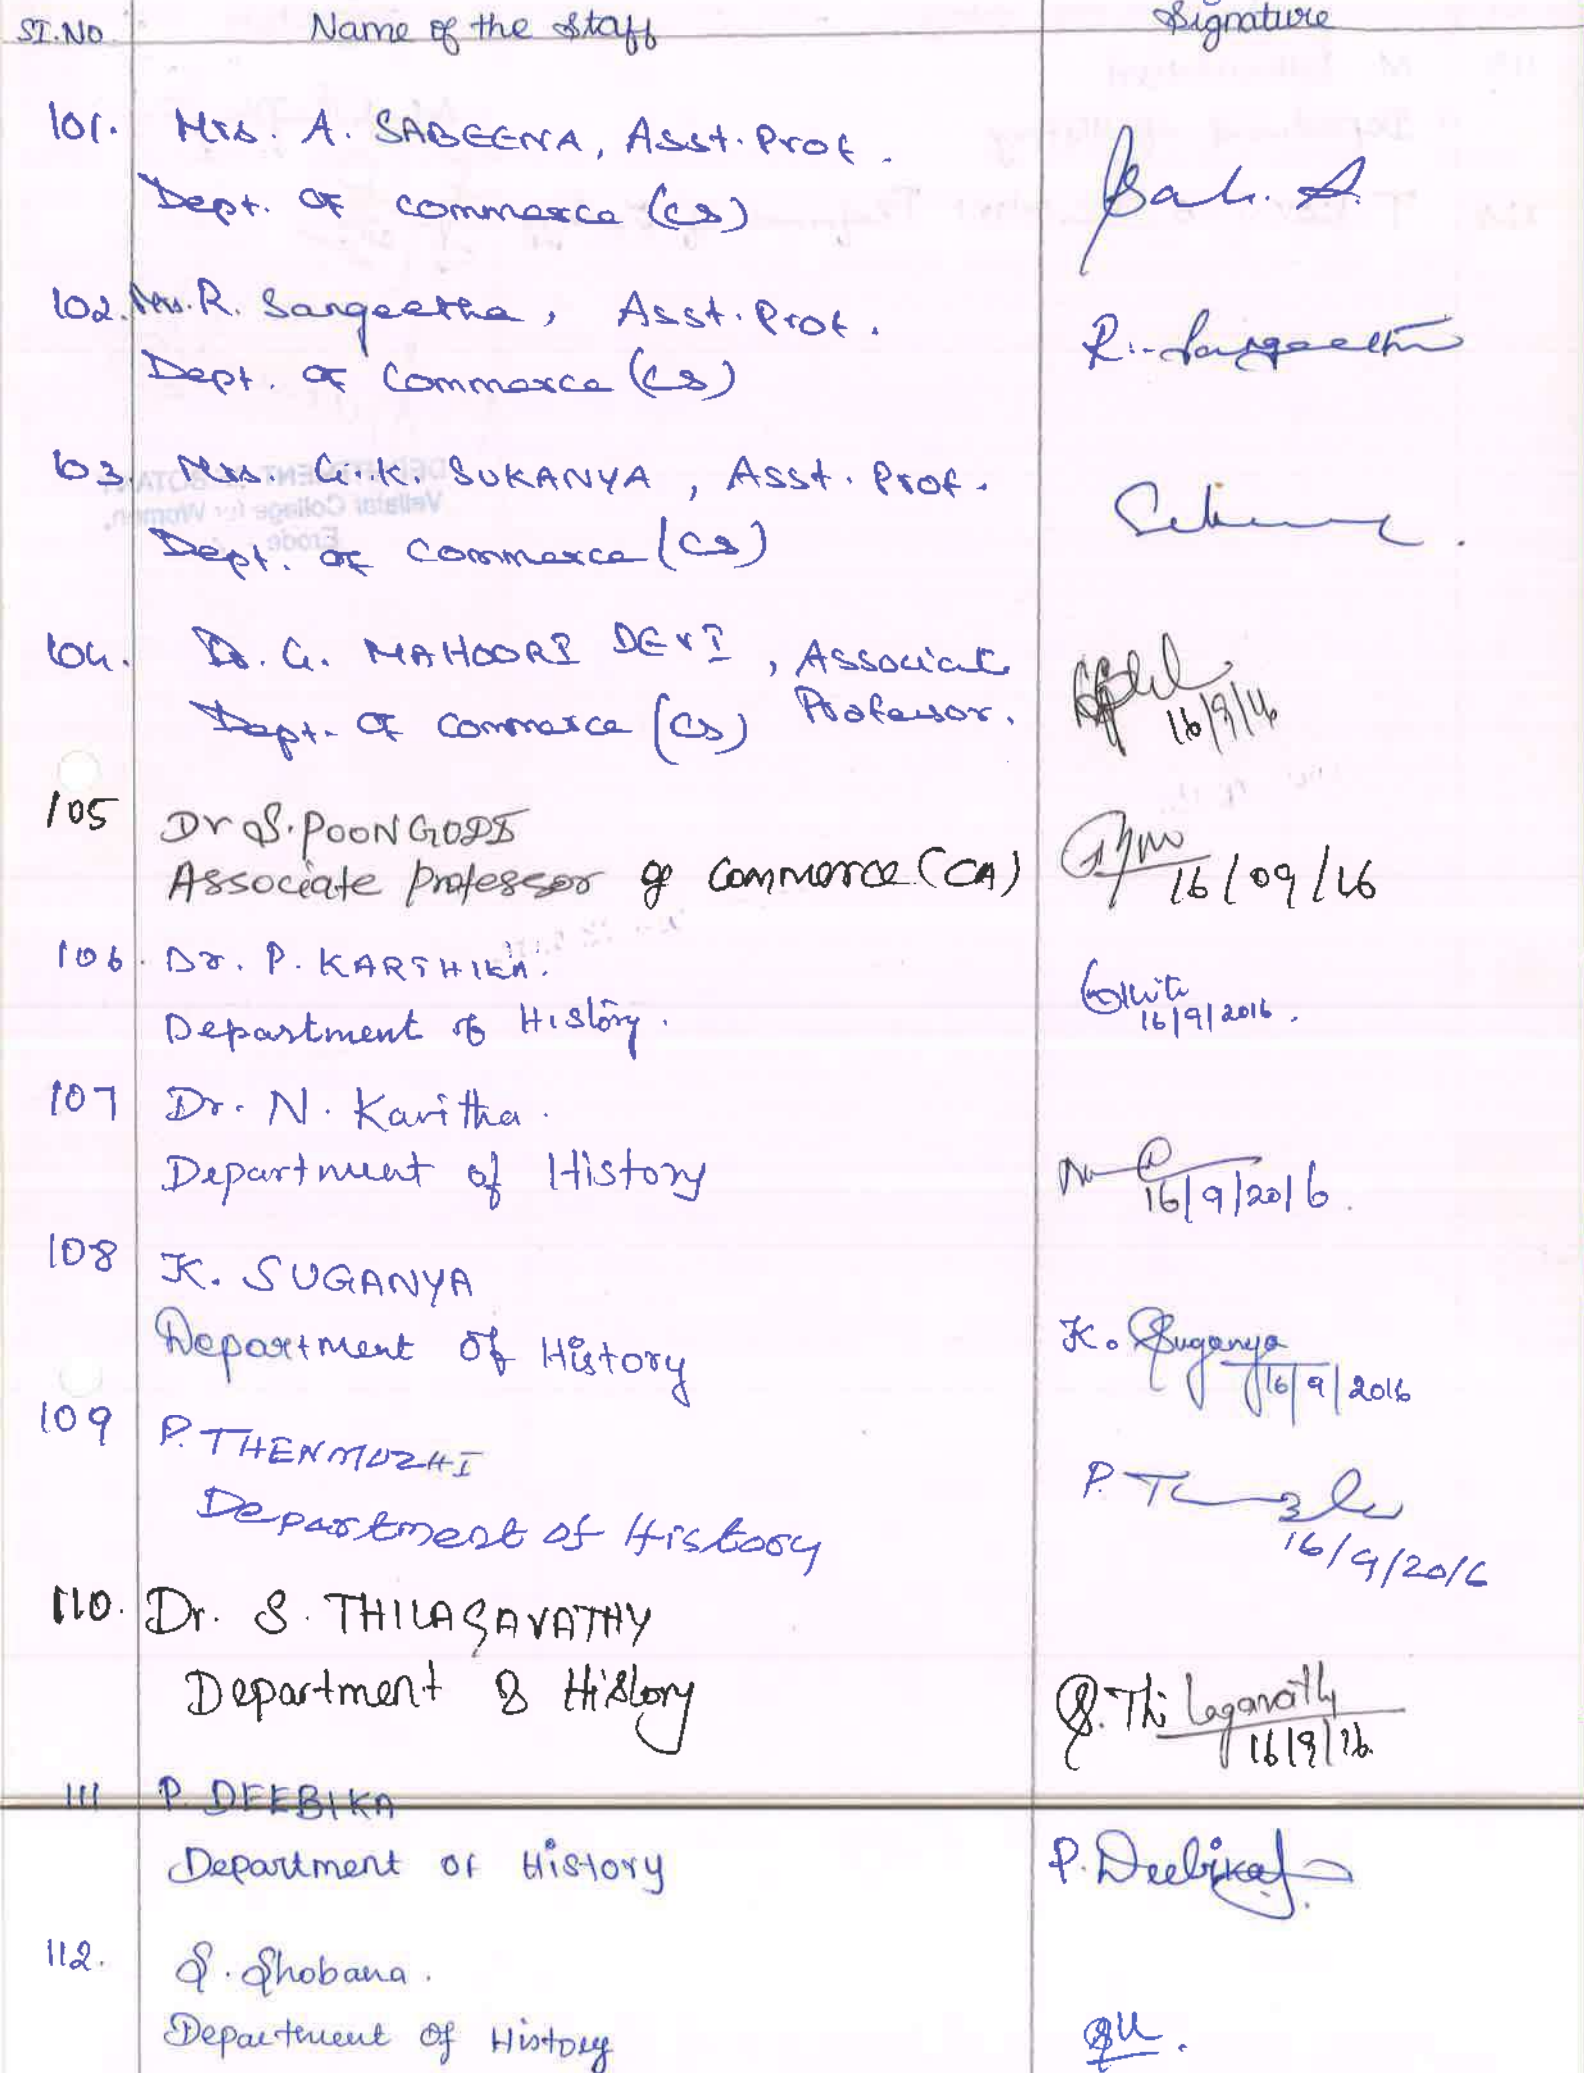 SI.No Name of the Staff Signature
101. Mrs. A. SABEENA, Asst. Prof.
Dept. of Commerce (CS)
102. Mrs. R. Sangeetha, Asst. Prof.
Dept. of Commerce (CS)
R. Sangeetha
103. Mrs. G.K. SUKANYA, Asst. Prof.
Dept. of Commerce (CS)
104. Dr. G. MAHOORI DEVI, Associate
Dept. of Commerce (CS) Professor.
16/9/16
105 Dr S. POONGODI
Associate Professor of Commerce (CA)
16/09/16
106. Dr. P. KARTHIKA.
Department of History.
16/9/2016.
107 Dr. N. Kavitha.
Department of History
16/9/2016.
108 K. SUGANYA
Department of History
K. Suganya
16/9/2016
109 P. THENMOZHI
Department of History
P.
16/9/2016
110. Dr. S. THILAGAVATHY
Department of History
S. Thilagavathy
16/9/16.
111 P. DEEBIKA
Department of History
P. Deebika
112. S. Shobana.
Department of History